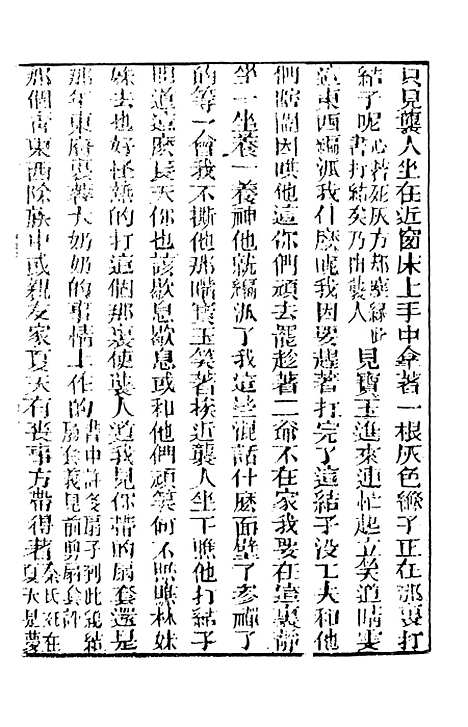 只見襲人坐在近窗床上手中拿著一根灰色縧子正在那裏打
結子呢心若死灰方知塵緣此書打結矣乃由襲人見寶玉進來連忙起立笑道晴雯
這東西編派我什麼呢我因要趕著打完了這結子沒工夫和他
們瞎鬧因哄他道你們頑去罷趁著二爺不在家我要在這裏靜
坐一坐養一養神他就編派了我這些混話什麼面壁了參禪了
的等一會我不撕他那嘴寶玉笑著挨近襲人坐下瞧他打結子
問道這麼長天你也該歇息歇息或和他們頑笑何不瞧瞧林妹
妹去也好怪熱的打這個那裏使襲人道我見你帶的扇套還是
那年東府裏蓉大奶奶的事情上作的書中許多扇子到此總結扇套義見前剪扇套評
那個青東西除族中或親友家夏天有喪事方帶得著秦氏死在夏天是夢